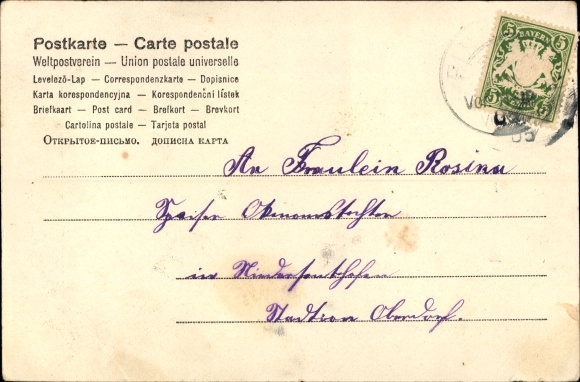 Postkarte — Carte postale
Weltpostverein — Union postale universelle
Levelező-Lap — Correspondenzkarte — Dopisnice
Karta korespondencyjna — Korespondenčni listek
Briefkaart — Post card — Brefkort — Brevkort
Cartolina postale — Tarjeta postal
Открытое-письмо. дописна карта
5 BAYERN 5
5 5
An Fräulein Rosina
Ökonomstochter
in Niedersonthofen
Stadtion Oberdorf.